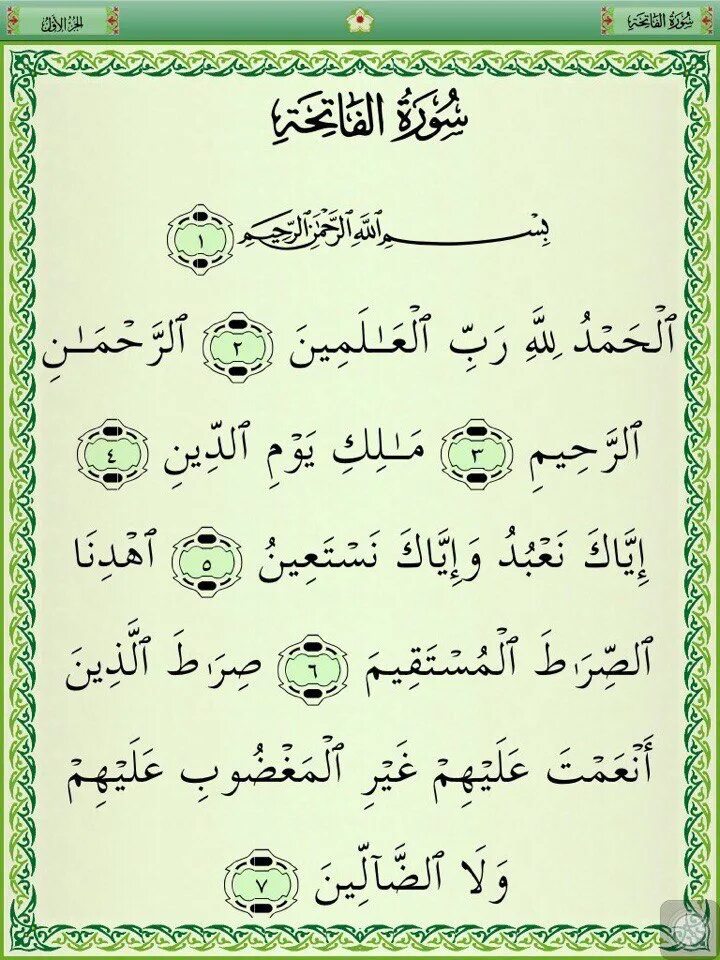 سُورَةُ الفَاتِحَةِ
الجزء الأول
سُورَةُ الفَاتِحَةِ
بِسْمِ ٱللَّهِ ٱلرَّحْمَٰنِ ٱلرَّحِيمِ ١
ٱلْحَمْدُ لِلَّهِ رَبِّ ٱلْعَـٰلَمِينَ ٢ ٱلرَّحْمَـٰنِ
ٱلرَّحِيمِ ٣ مَـٰلِكِ يَوْمِ ٱلدِّينِ ٤
إِيَّاكَ نَعْبُدُ وَإِيَّاكَ نَسْتَعِينُ ٥ ٱهْدِنَا
ٱلصِّرَٰطَ ٱلْمُسْتَقِيمَ ٦ صِرَٰطَ ٱلَّذِينَ
أَنْعَمْتَ عَلَيْهِمْ غَيْرِ ٱلْمَغْضُوبِ عَلَيْهِمْ
وَلَا ٱلضَّآلِّينَ ٧